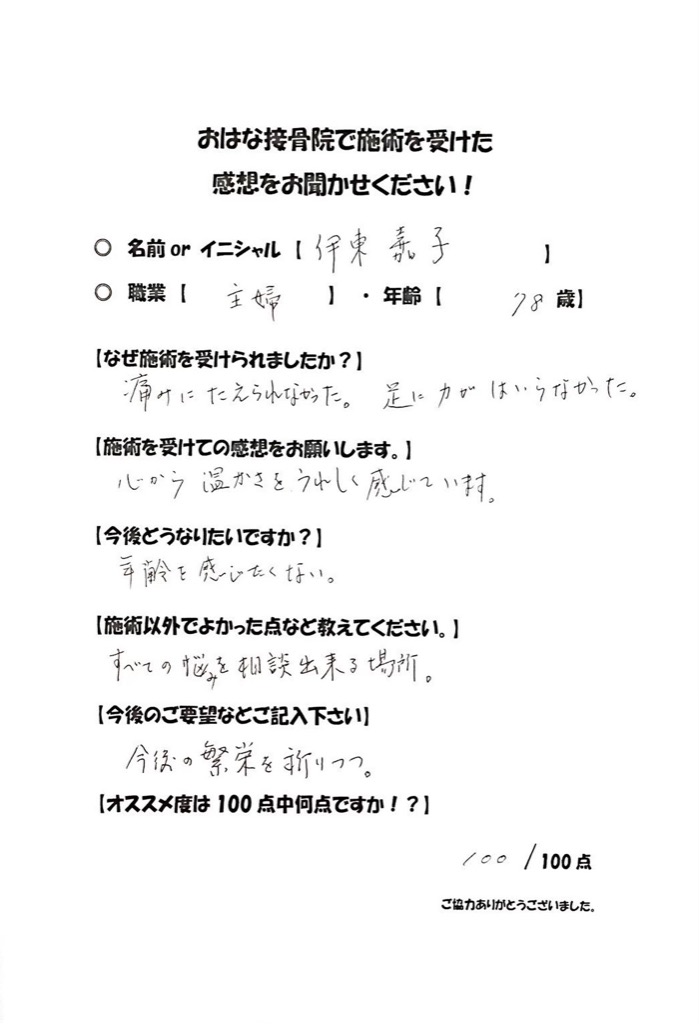 おはな接骨院で施術を受けた
感想をお聞かせください！
○ 名前or イニシャル【 伊東 嘉子 】
○ 職業【 主婦 】・年齢【 78 歳】
【なぜ施術を受けられましたか？】
痛みにたえられなかった。 足に力がはいらなかった。
【施術を受けての感想をお願いします。】
心から 温かさをうれしく感じています。
【今後どうなりたいですか？】
年齢を感じたくない。
【施術以外でよかった点など教えてください。】
すべての悩みを相談出来る場所。
【今後のご要望などご記入下さい】
今後の繁栄を祈りつつ。
【オススメ度は100点中何点ですか！？】
100 /100点
ご協力ありがとうございました。